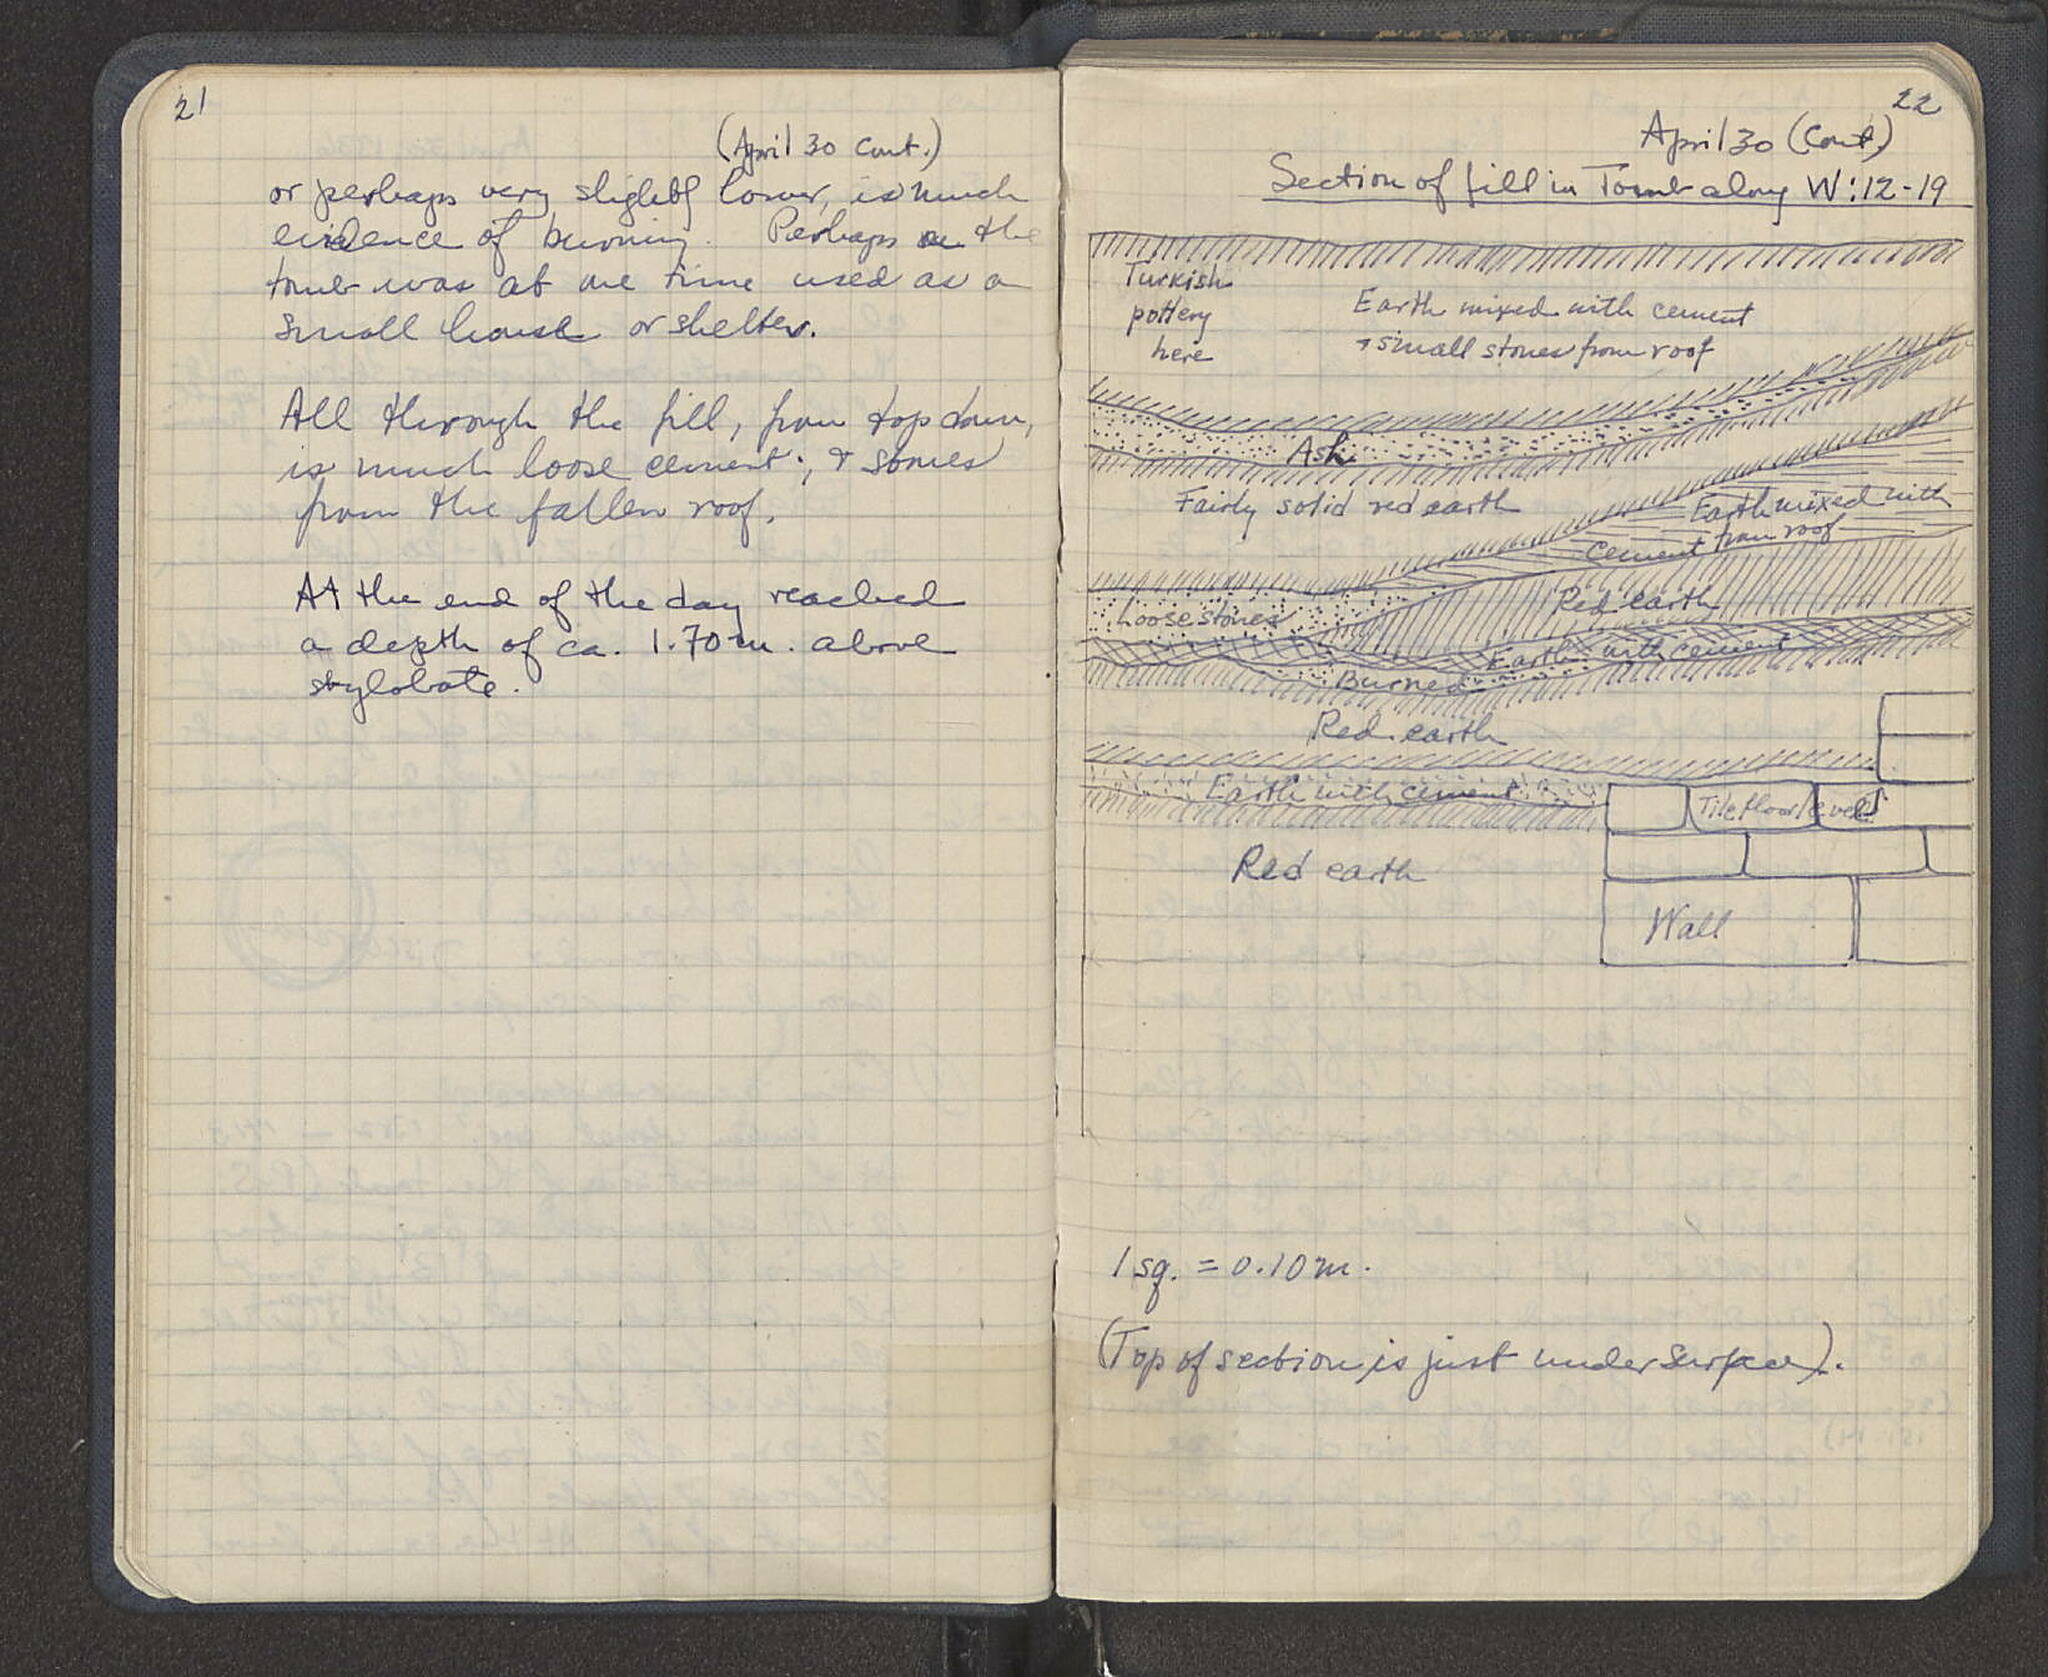 21
(April 30 cont.)
or perhaps very slightly lower, is much
evidence of burning. Perhaps the
tomb was at one time used as a
small house or shelter.
All through the fill, from top down,
is much loose cement, & stones
from the fallen roof.
At the end of the day reached
a depth of ca. 1.70 m. above
stylobate.
22
April 30 (Cont.)
Section of fill in Tomb along W:12-19
Turkish
pottery
here
Earth mixed with cement
+ small stones from roof
Ash
Fairly solid red earth
Earth mixed with
cement from roof
Loose stones
Red earth
Earth with cement
Burned
Red earth
Earth with cement
Tile floor level
Red earth
Wall
1 sq. = 0.10 m.
(Top of section is just under surface).